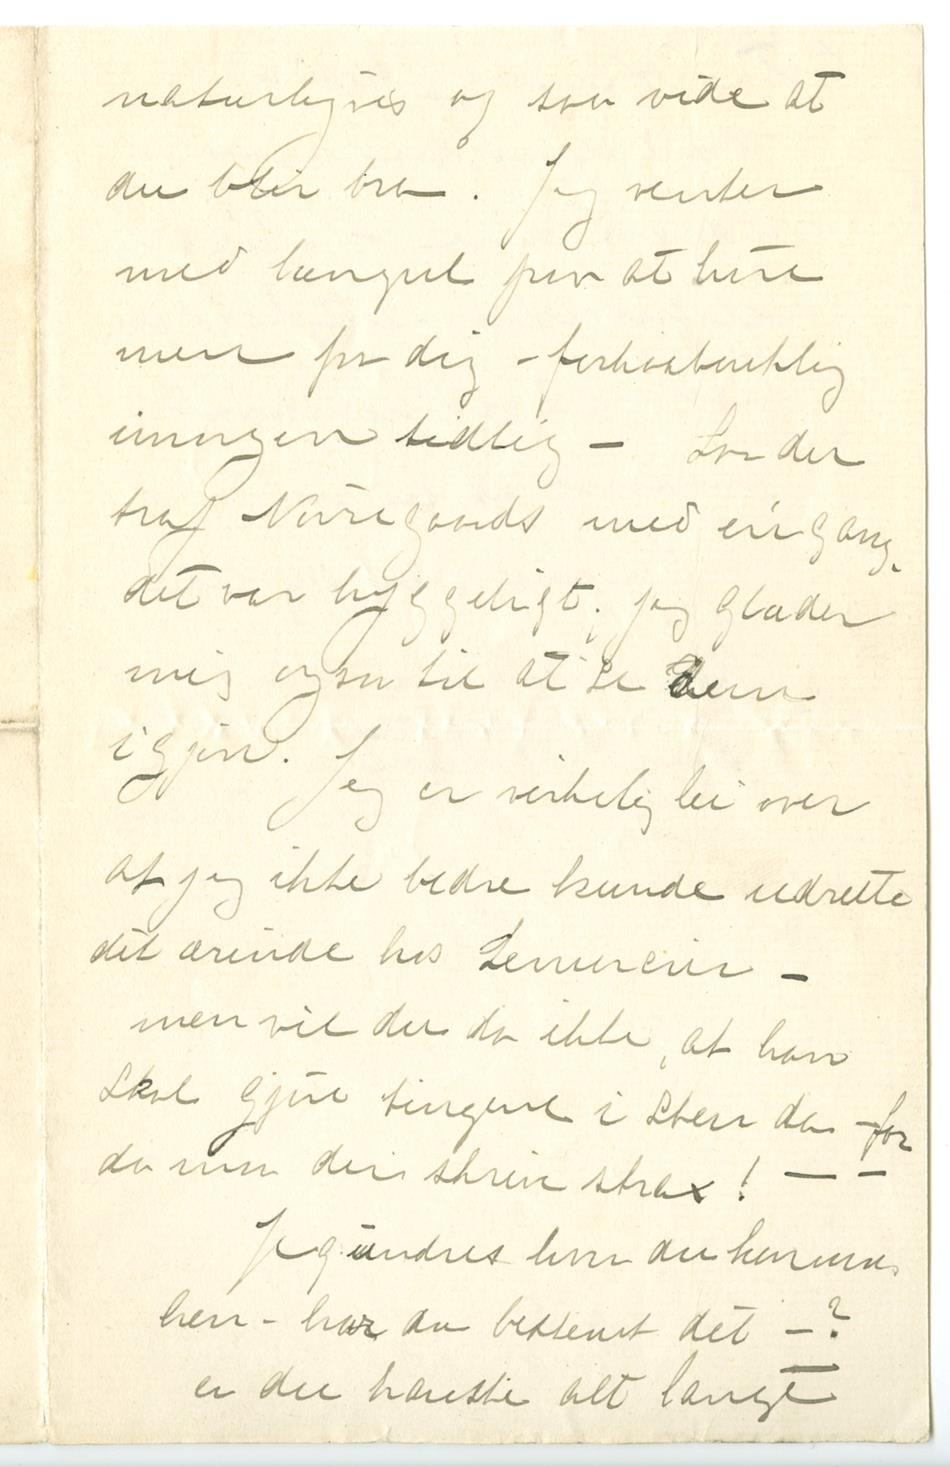 naturligvis og saa vide at
du blir bra. Jeg venter
med længsel paa at høre
mere fra dig – forhaabentlig
imorgen tidlig –
traf Nørregaards med én gang,
det var hyggeligt. jeg glæder
mig ogsaa til at se dem
igjen. Jeg er virkelig lei over
at jeg ikke bedre kunde udrette
dit ærinde hos Lemercier –
men vil du da ikke, at han
skal gjøre tingene i sten da – for
da maa du skrive strax! – –
Jeg undres hvor du kommer
hen – har du bestemt det – ?
er du kanske alt langt